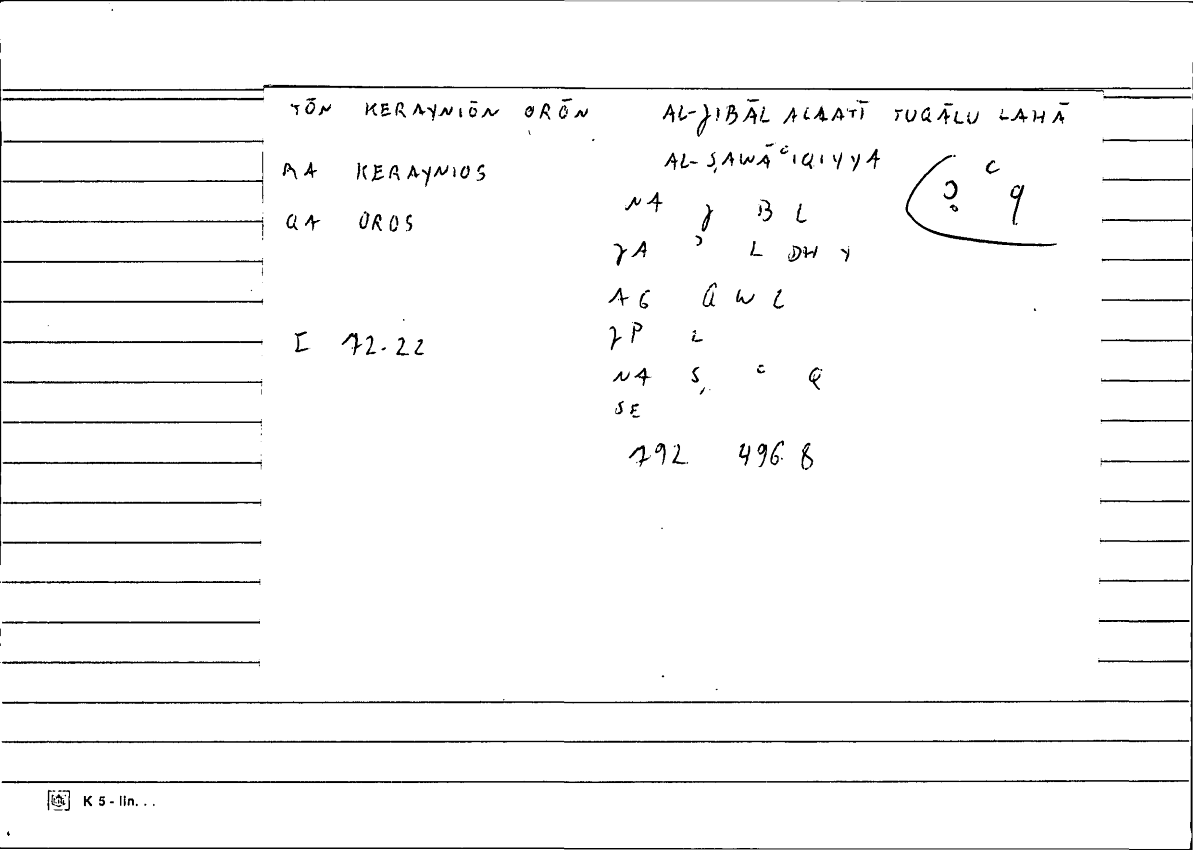 TŌN KERAYNIŌN ORŌN
AL-JIBĀL ALAATĪ TUQĀLU LAHĀ
AL-ṢAWĀʿIQIYYA
RA KERAYNIOS
QA OROS
I 72.22
NA J B L
JA ʾ L DH Y
AG Q W L
JP L
NA Ṣ ʿ Q
SE
792 496.8
ʿ q
K 5 - lin. . .